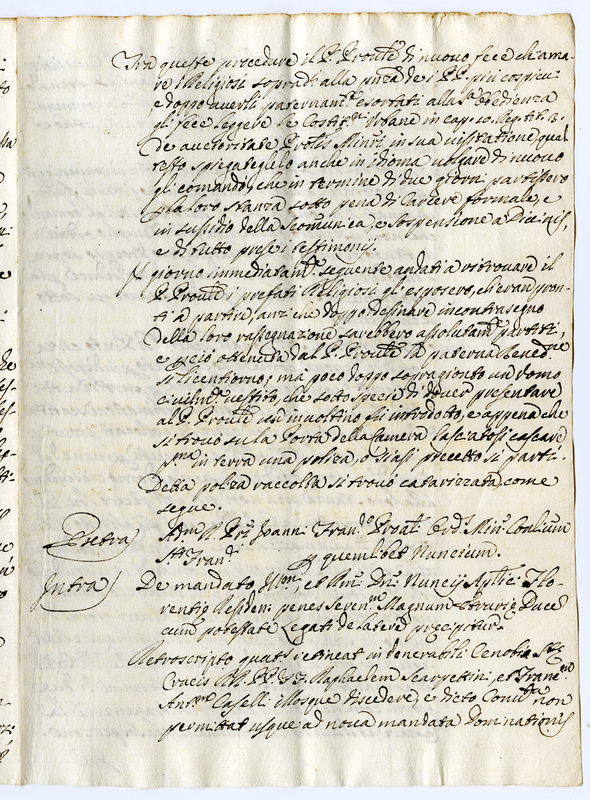 Tra queste procedure il P. Proule di nuovo fece chiama-
re i Religiosi sopradi alla pnza dei PP. più cospicui
e doppo averli paternamte esortati alla sta obedienza
gli fece leggere le Costitni Urbane in cap. 10.
De auctoritate Prolis Minri in sua visitatione, qual
testo spiegateglelo anche in idioma volgare di nuovo
gli comandò, che in termine di due giorni partissero
p la loro stanza sotto pena di Carcere formale, e
in sussidio della Scomunica, e Sospensione a Divinis,
e di tutto prese i testimonij.
Il giorno immediatamte seguente andati a ritrovare il
P. Proule i prefati Religiosi gli esposero, ch'eran pron-
ti a partire, anzi che doppo desinare in contrasegno
della loro rassegnazione sarebbero assolutamte partiti,
e pciò ottenuta dal P. Proule la paterna Benedne
si licentiorno; mà poco doppo sopragionto un Uomo
civilmte vestito, che sotto specie di dover presentare
al P. Proule un involtino fù introdotto, e appena che
si trovò su la Porta della Camera lasciatosi cascare
pma in terra una poliza, o siasi precetto si partì.
Detta poliza raccolta si trovò catarizzata, come
segue.
Extra) Adm R. Pri Joanni Franco Proali Ordis Minrum Conlium
Sti Franci
p quemlibet Nuncium.
Intra) De mandato Illmi, et Rmi Dni Nuncij Aplici Flo-
rentiæ Residen: penes Serenmum Magnum Etruriæ Ducem
cum potestate Legati de Latere præcipitur
Retroscripto quats retineat in Venerabili Cenobio Stæ
Crucis RR. PP. Raphaelem Scarpettini, et Francum
Antmum Caselli illosque discedere, e dicto Convtu non
permittat usque ad nova mandata Dominationis